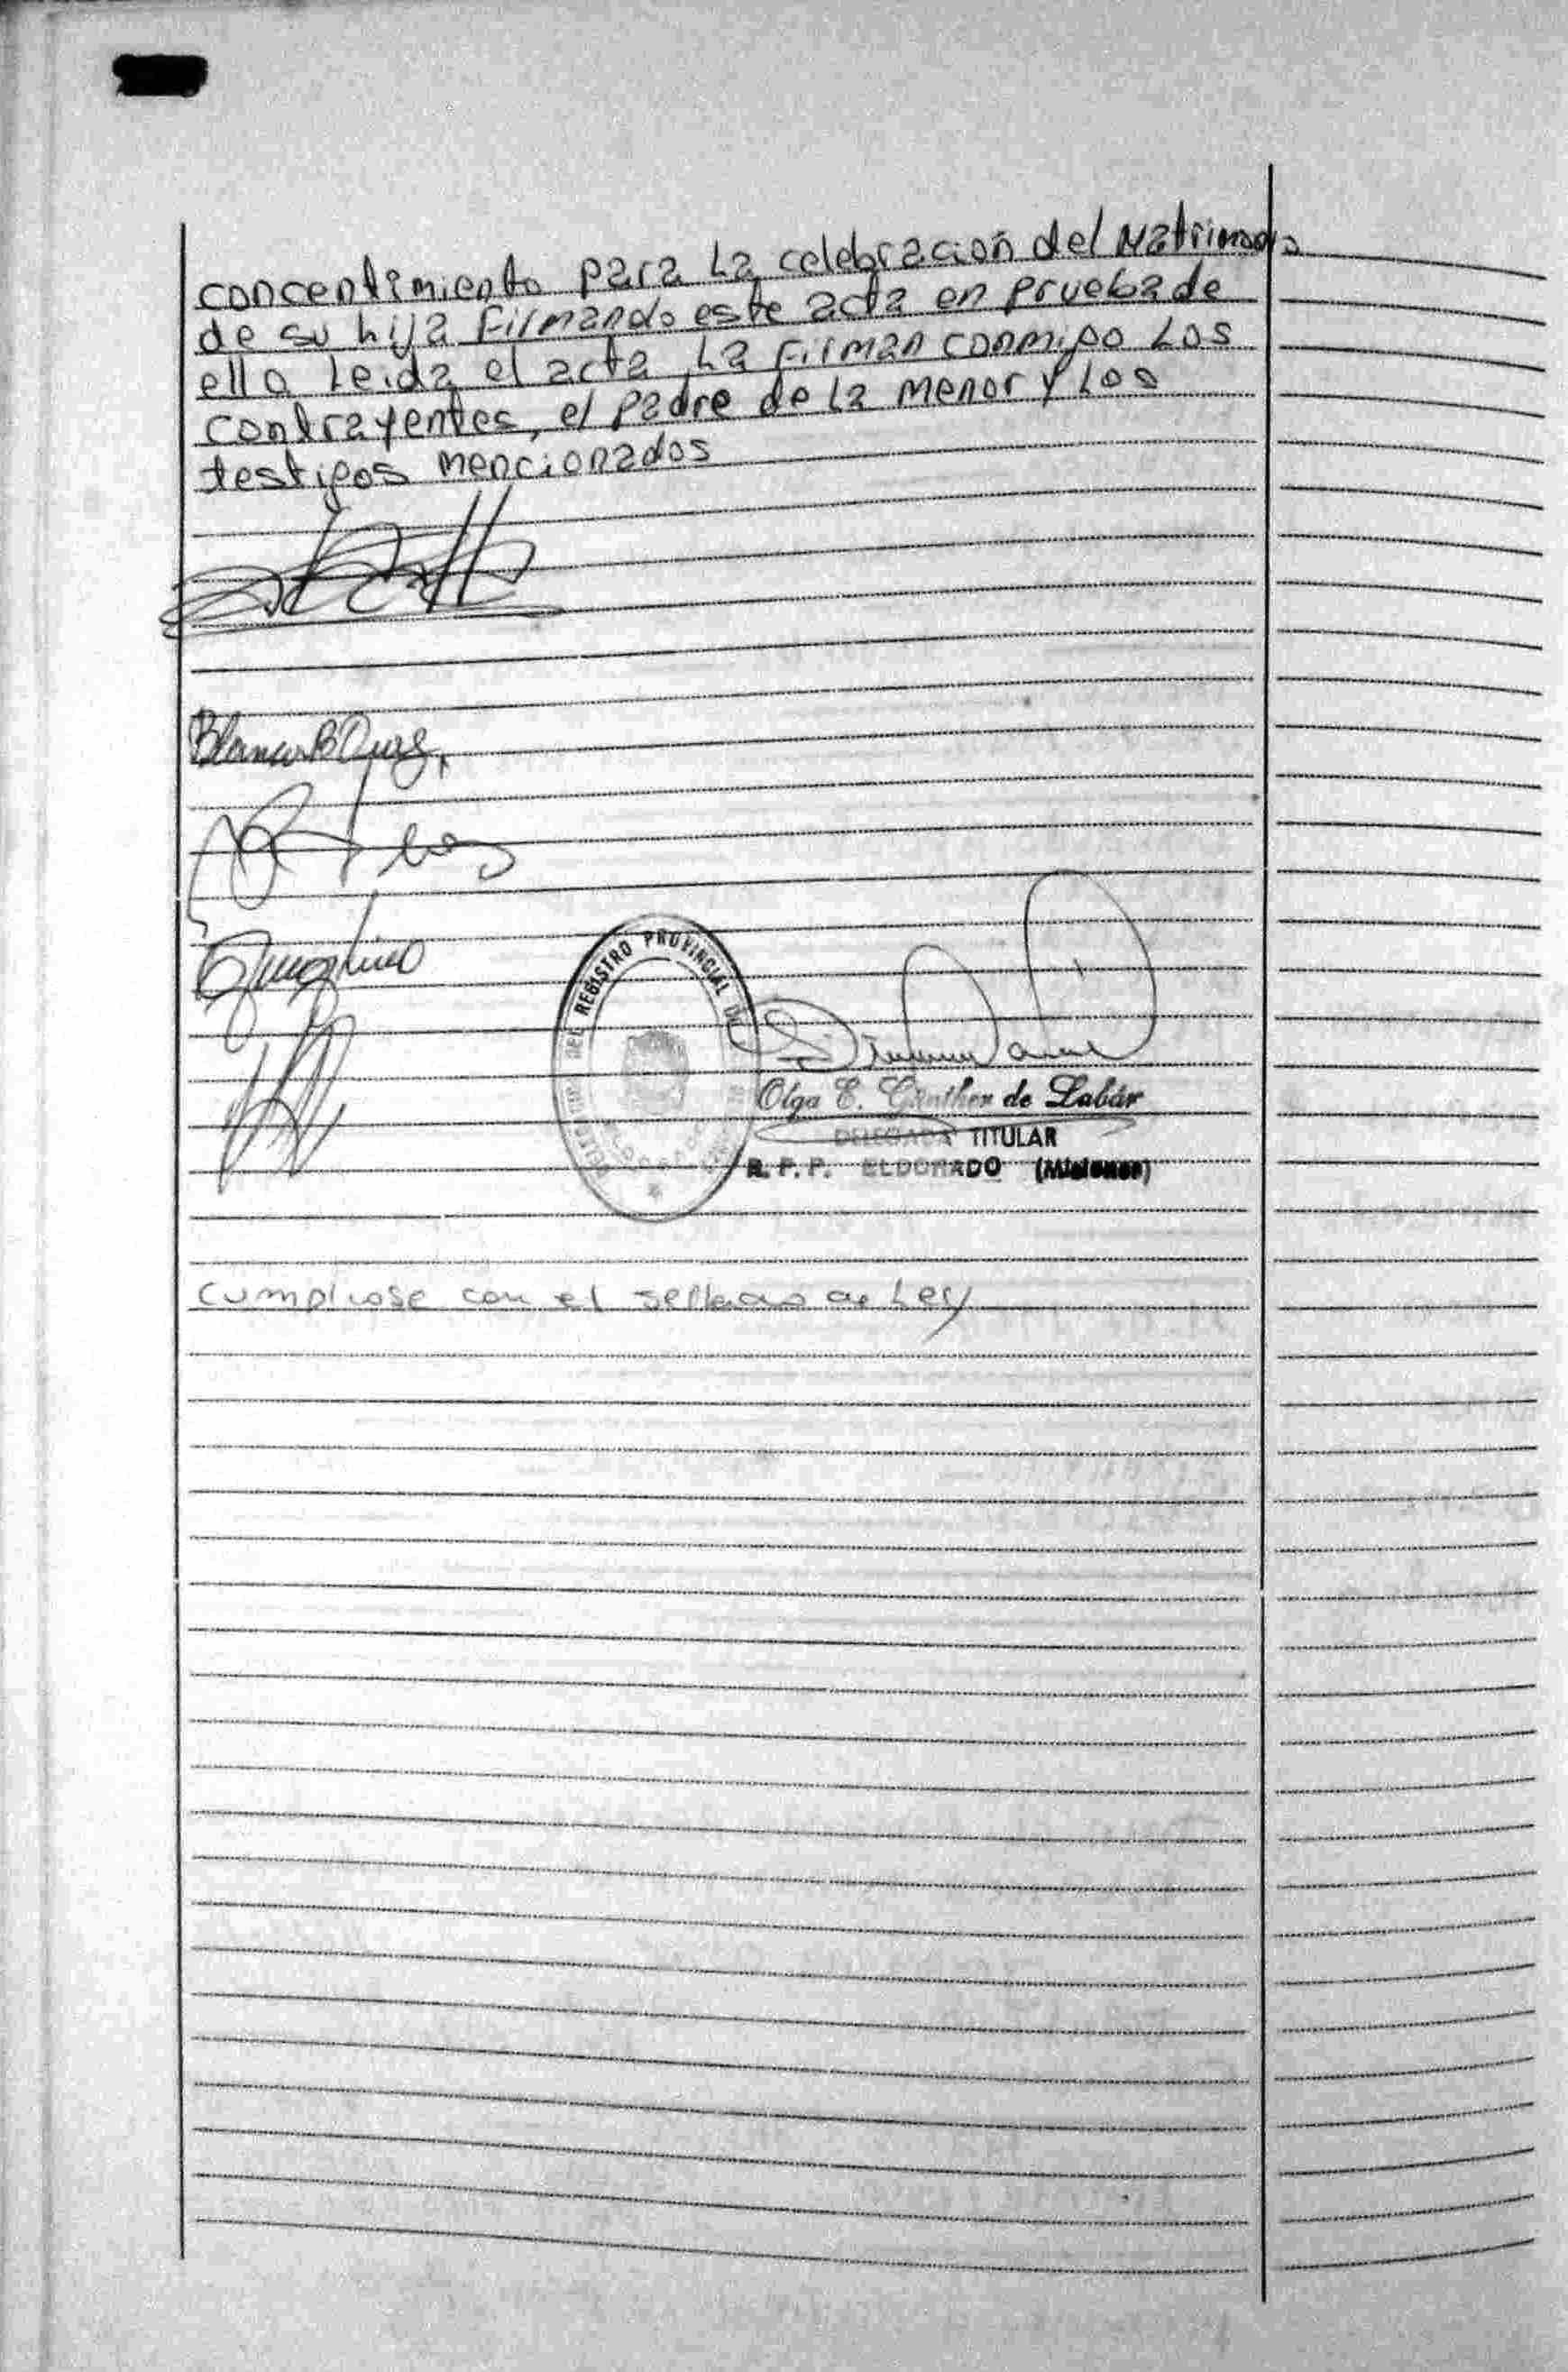 concentimiento para La celebración del Matrimonio
de su hija Firmando este acta en prueba de
ello Leida el acta La Firman conmigo Los
contrayentes, el Padre de La menor y Los
testigos mencionados
Blanca B Diaz
DEL REGISTRO PROVINCIAL DE
Olga E. Günther de Labár
DELEGADA TITULAR
R. P. P. ELDORADO (Misiones)
Cumpliose con el sellado de Ley